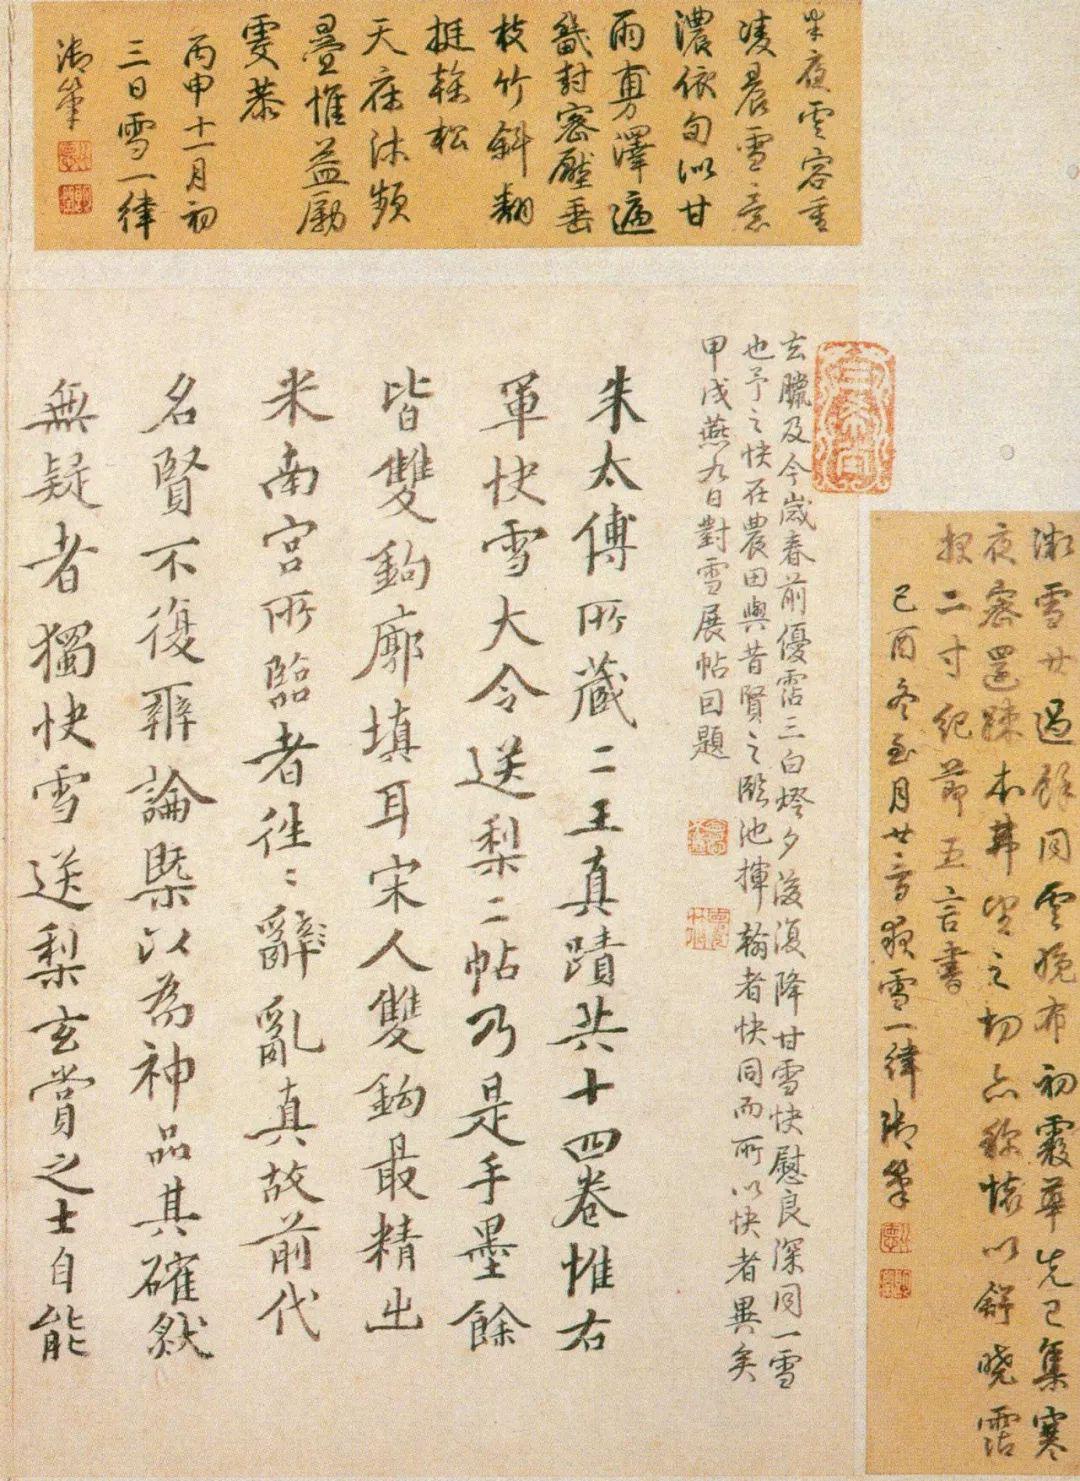 半夜雲容重
凌晨雪意
濃依旬似甘
雨專澤遍
畿封密壓垂
枝竹斜翻
挺榦松
天庥沐頻
疊惟益勵
雯恭
丙申十一月初
三日雪一律
御筆
溦雪廿過餘同雲晚布初霰華先已集寒
夜密還踈未華望之切亦稱懷以舒曉霑
報二寸紀節五言書
己酉冬至月廿夜雪一律御筆
玄臘及今歲春前優霑三白燈夕後復降甘雪快慰良深同一雪
也予之快在農田與昔賢之臨池揮翰者快同而所以快者異矣
甲戌燕九日對雪展帖因題
朱太傅所藏二王真蹟共十四卷惟右
軍快雪大令送梨二帖乃是手墨餘
皆雙鉤廓填耳宋人雙鉤最精出
米南宮所臨者往〻辭亂真故前代
名賢不復辨論槩以為神品其確然
無疑者獨快雪送梨玄賞之士自能